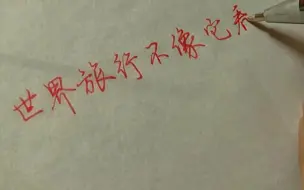 世界旅行不像它看